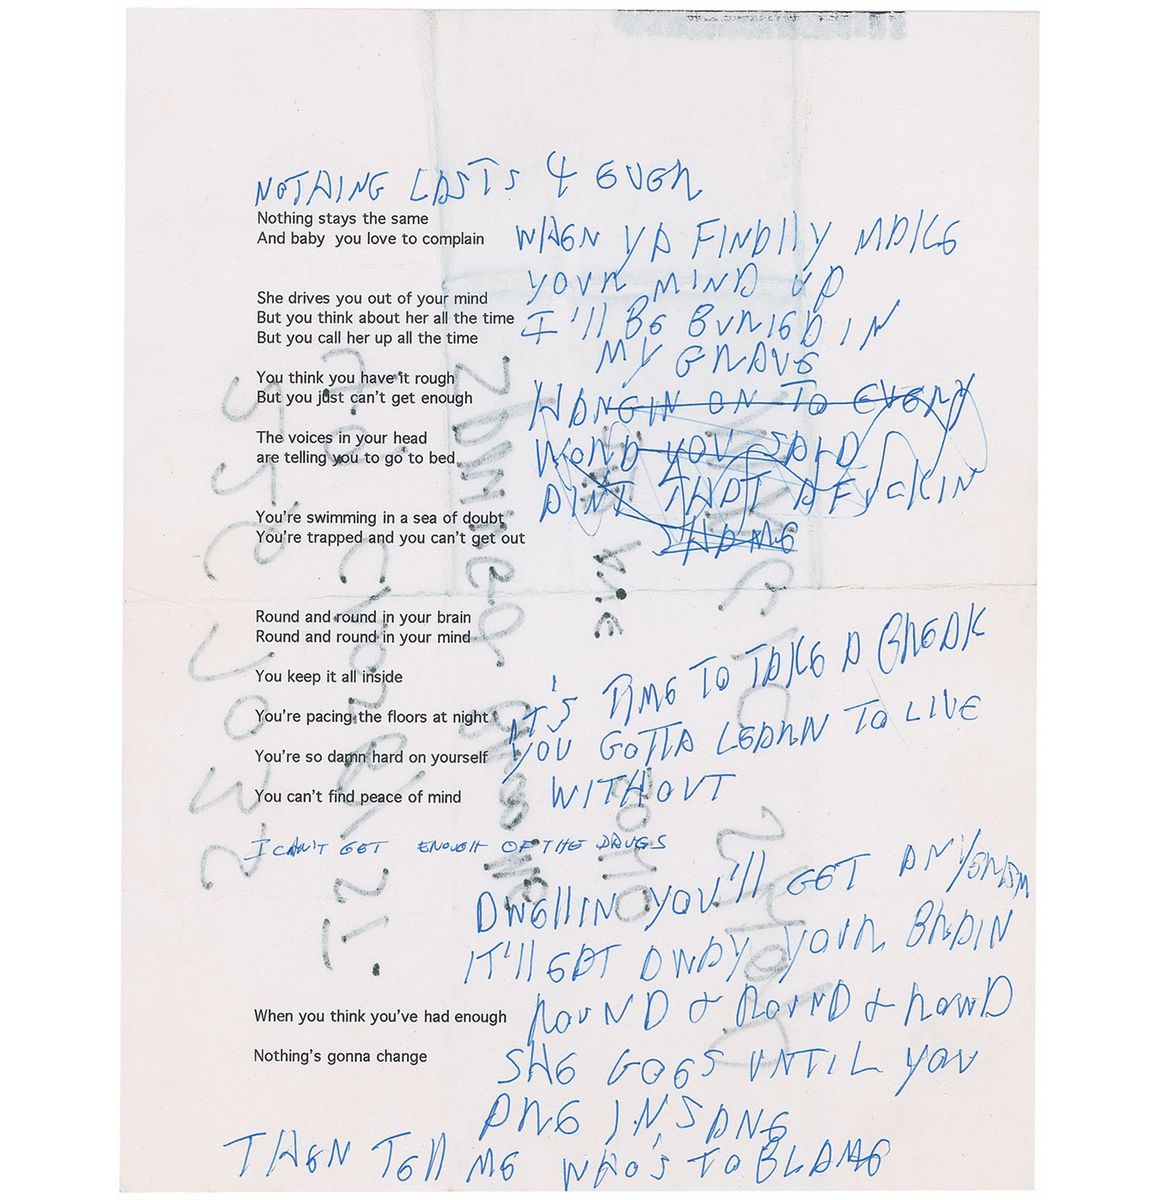 NOTHING LASTS 4 EVER
Nothing stays the same
And baby you love to complain
WHEN YA FINALLY MAKE
YOUR MIND UP
She drives you out of your mind
But you think about her all the time
But you call her up all the time
I'll BE BURIED IN
MY GRAVE
You think you have it rough
But you just can't get enough
HANGIN ON TO EVERY
The voices in your head
are telling you to go to bed
WORD YOU SAID
AINT THAT A FUCKIN
SHAME
You're swimming in a sea of doubt
You're trapped and you can't get out
Round and round in your brain
Round and round in your mind
You keep it all inside
IT'S TIME TO TAKE A BREAK
You're pacing the floors at night
YOU GOTTA LEARN TO LIVE
You're so damn hard on yourself
WITHOUT
You can't find peace of mind
I CAN'T GET ENOUGH OF THE DRUGS
DWELLIN YOU'll GET
IT'll EAT AWAY YOUR BRAIN
When you think you've had enough
ROUND & ROUND & ROUND
Nothing's gonna change
SHE GOES UNTIL YOU
ARE INSANE
THEN TEll ME WHO'S TO BLAME